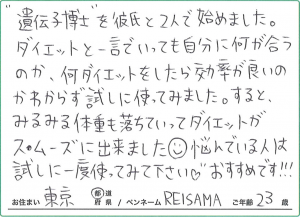 "遺伝子博士"を彼氏と2人で始めました。
ダイエットと一言でいっても自分に何が合う
のか、何ダイエットをしたら効率が良いの
かわからず試しに使ってみました。すると、
みるみる体重も落ちていってダイエットが
スムーズに出来ました☺悩んでいる人は
試しに一度使ってみて下さい♡おすすめです!!!
お住まい 東京 都道府県 / ペンネーム REISAMA ご年齢 23 歳